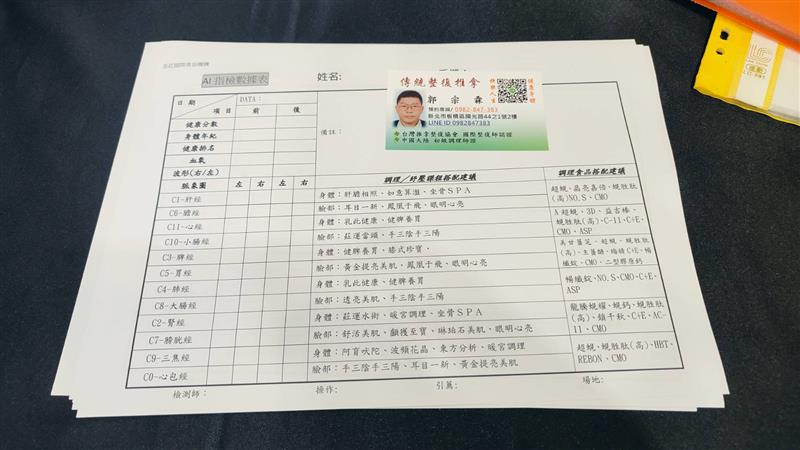 AI 指檢數據表
姓名:
傳統整復推拿
快樂人生
健康身體
郭宗森
預約專線/0982-847-383
新北市板橋區陽光路44之1號2樓
LINE ID 0982847383
台灣推拿整復協會 國際整復師認證
中國大陸 初級調理師證
日期
DATA:
項目
前
後
備註:
健康分數
身體年紀
健康排名
血氣
波形(右/左)
脈象圖
左
右
左
右
調理/紓壓課程搭配建議
調理食品搭配建議
C1-肝經
身體:肝膽相照、如意算盤、坐骨SPA
C6-膽經
臉部:耳目一新、鳳凰于飛、眼明心亮
超蜆、晶亮嘉倍、蜆胜肽
(高)NO.S、CMO
C11-心經
身體:乳此健康、健脾養胃
C10-小腸經
臉部:莊運當頭、手三陰手三陽
A超蜆、3D、益吉棒、
蜆胜肽(高)、C-11、C+E、
CMO、ASP
C3-脾經
身體:健脾養胃、膝式珍寶、
C5-胃經
臉部:黃金提亮美肌、鳳凰于飛、眼明心亮
C4-肺經
身體:乳此健康、健脾養胃
C8-大腸經
臉部:透亮美肌、手三陰手三陽
楊纖錠、NO.S、CMO、C+E、
ASP
C2-腎經
身體:莊運水術、暖宮調理、坐骨SPA
C7-膀胱經
臉部:舒活美肌、顏獲至寶、琳珀石美肌、眼明心亮
龍騰蜆耀、蜆鈣、蜆胜肽
(高)、鎖千秋、C+E、AC-
11、CMO
C9-三焦經
身體:阿育吠陀、波頻花晶、東方分析、暖宮調理
C0-心包經
臉部:手三陰手三陽、耳目一新、黃金提亮美肌
超蜆、蜆胜肽(高)、HBT、
REBON、CMO
檢測師:
操作:
引薦:
場地: